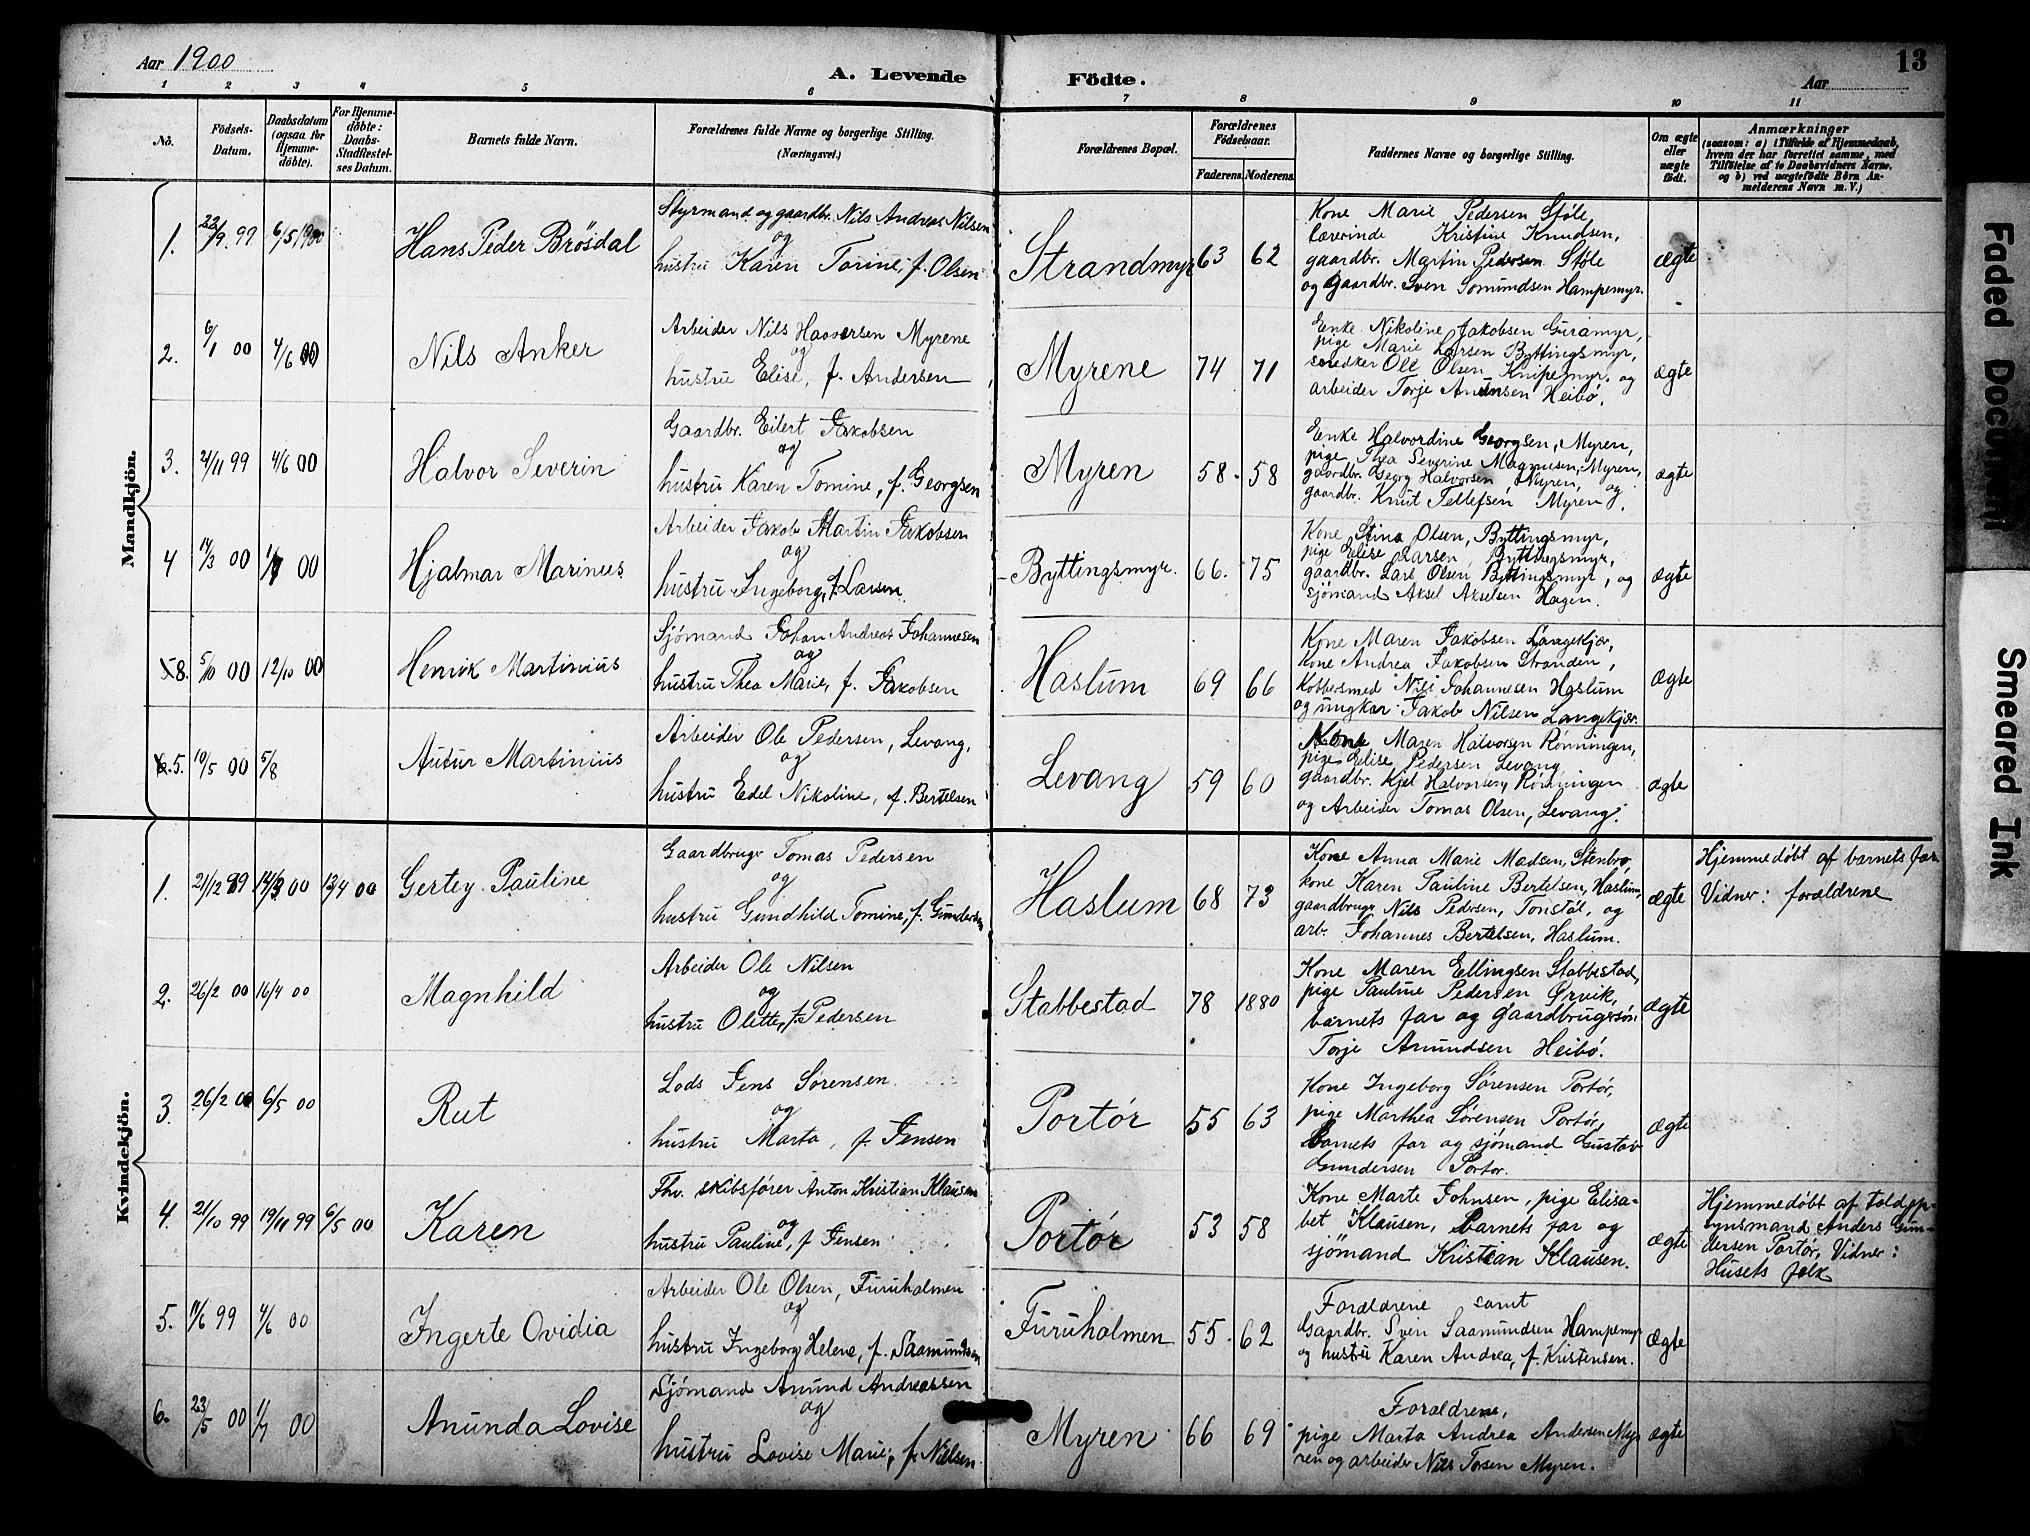 Aar 1900
A. Levende Födte.
Aar
13
1 2 3 4 5 6 7 8 9 10 11
No.
Födsels-Datum.
Daabsdatum (ogsaa for Hjemme-döbte).
For Hjemme-döbte: Daabs-Stadfæstel-ses Datum.
Barnets fulde Navn.
Forældrenes fulde Navne og borgerlige Stilling.
(Næringsvei.)
Forældrenes Bopæl.
Forældrenes Födselsaar.
Faderens. Moderens.
Faddernes Navne og borgerlige Stilling.
Om ægte eller uægte födt.
Anmærkninger
(saasom: a) i Tilfælde af Hjemmedaab, hvem der har forrettet samme, med Tilföielse af to Daabsvidners Navne, og b) ved uægtefödte Börn An-melderens Navn m. V.)
Mandkjön.
1. 22/9 99 6/5 1900
Hans Peder Brösdal
Styrmand og gaardbr. Nils Andreas Nilsen
og
hustru Karen Torine, f. Olsen
Strandmyr 63 62
Kone Marie Pedersen Støle,
lærerinde Kristine Knudsen,
gaardbr. Martin Pedersen Støle
og gaardbr. Sven Somundsen Hampemyr.
ægte
2. 6/1 00 4/6 00
Nils Anker
Arbeider Nils Haavorsen Myrene
og
hustru Elise, f. Andersen
Myrene 74 71
Enke Nikoline Jakobsen Guramyr,
pige Marie Larsen Byttingsmyr,
snedker Ole Olsen Knipemyr. og
arbeider Torje Heibö.
ægte
3. 21/11 99 4/6 00
Halvor Severin
Gaardbr. Eilert Jakobsen
og
hustru Karen Tomine, f. Georgsen
Myren 58 58
Enke Halvordine Georgsen, Myren,
pige Thea Severine Magnusen, Myren,
gaardbr. Georg Halvorsen, Myren, og
gaardbr. Knut Tellefsen Myren.
ægte
4 14/3 00 1/7 00
Hjalmar Marinus
Arbeider Jakob Martin Jakobsen
og
hustru Ingeborg, f. Larsen
Byttingsmyr. 66. 75
Kone Stina Olsen, Byttingsmyr,
pige Elise Larsen, Byttingsmyr,
gaardbr. Lars Olsen Byttingsmyr, og
sjömand Aksel Akselsen Hagen.
ægte
8. 5/10 00 12/10 00
Henrik Martinius
Sjömand Johan Andreas Johannesen
og
hustru Thea Marie, f. Jakobsen
Haslum 69 66
Kone Maren Jakobsen Langekjær,
kone Andrea Jakobsen Stranden,
Kobbersmed Nils Johannesen Haslum
og ungkar Jakob Nilsen Langekjær.
ægte
5. 10/5 00 5/8
Autur Martinius
Arbeider Ole Pedersen, Levang,
og
hustru Edel Nikoline, f. Bertelsen
Levang 59 60
Kone Maren Halvorsen Rønningen,
pige Elise Pedersen Levang
gaardbr. Kjel Halvorsen, Rønningen
og Arbeider Tomas Olsen, Levang.
ægte
Kvindekjön.
1. 21/12 99 14/3 00 13/4 00
Gertey Pauline
Gaardbruger Tomas Pedersen
og
hustru Gundhild Tomine, f. Gundersen
Haslum 68 73
Kone Anna Marie Madsen, Stenbro,
kone Karen Pauline Bertelsen, Haslum,
gaardbruger Nils Pedersen, Tonstøl, og
arb. Johannes Bertelsen, Haslum.
ægte
Hjemmedøbt af barnets far.
Vidner: forældrene
2. 26/2 00 16/4 00
Magnhild
Arbeider Ole Nilsen
og
hustru Olette, f. Pedersen
Stabbestad 78 1880
Kone Maren Ellingsen Stabbestad,
pige Pauline Pedersen Ørvik,
barnets far og gaardbrugersön
Torje Anundsen Heibö.
ægte
3. 26/2 00 6/5 00
Rut
Lods Jens Sorensen
og
hustru Marta, f. Jensen
Portör 55 63
Kone Ingeborg Sörensen Portör,
pige Marthea Sörensen Portör,
Barnets far og sjömand Gustav
Gundersen Portør.
ægte
4. 21/10 99 19/11 99 6/5 00
Karen
Fhv. skibsfører Anton Kristian Klausen
og
hustru Pauline, f Jensen
Portör 53 58
Kone Marte Johnsen, pige Elisa-
bet Klausen, Barnets far og
sjömand Kristian Klausen.
ægte
Hjemmedøbt af toldop-
synsmand Anders Gun-
dersen Portør, Vidner:
Husets folk
5. 11/6 99 4/6 00
Ingerte Ovidia
Arbeider Ole Olsen, Furuholmen
og
hustru Ingeborg Helene, f. Saamundsen
Furuholmen 55. 62
Forældrene samt
Gaardbr. Sven Saamundsen Hampemyr
og hustru Karen Andrea, f. Kristensen.
ægte
6. 23/5 00 1/7 00
Anunda Lovise
Sjömand Anund Andreassen
og
hustru Lovise Marie, f. Nielsen.
Myren 66 69
Forældrene,
pige Marta Andrea Andersen My-
ren og arbeider Nils Torsen Myren.
ægte
Faded Document
Smeared Ink